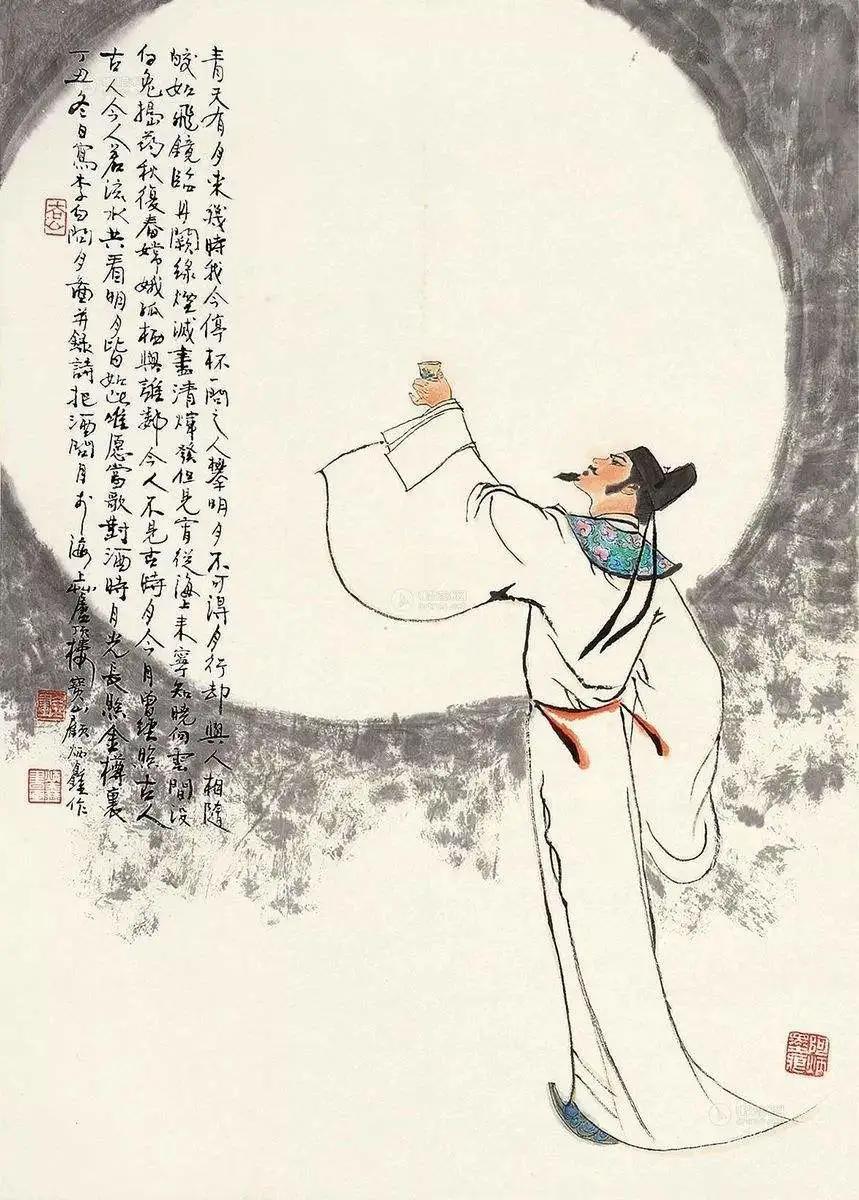 青天有月来幾時我今停杯一問之人攀明月不可得月行却與人相隨
皎如飛鏡臨丹闕綠煙滅盡清輝發但見宵從海上来寧知曉向雲間没
白兔搗药秋復春嫦娥孤栖與誰鄰今人不見古時月今月曾經照古人
古人今人若流水共看明月皆如此唯愿當歌對酒時月光長照金樽裏
丁丑冬日寫李白問月圖并錄詩把酒問月於海上樓寶山顧炳鑫作